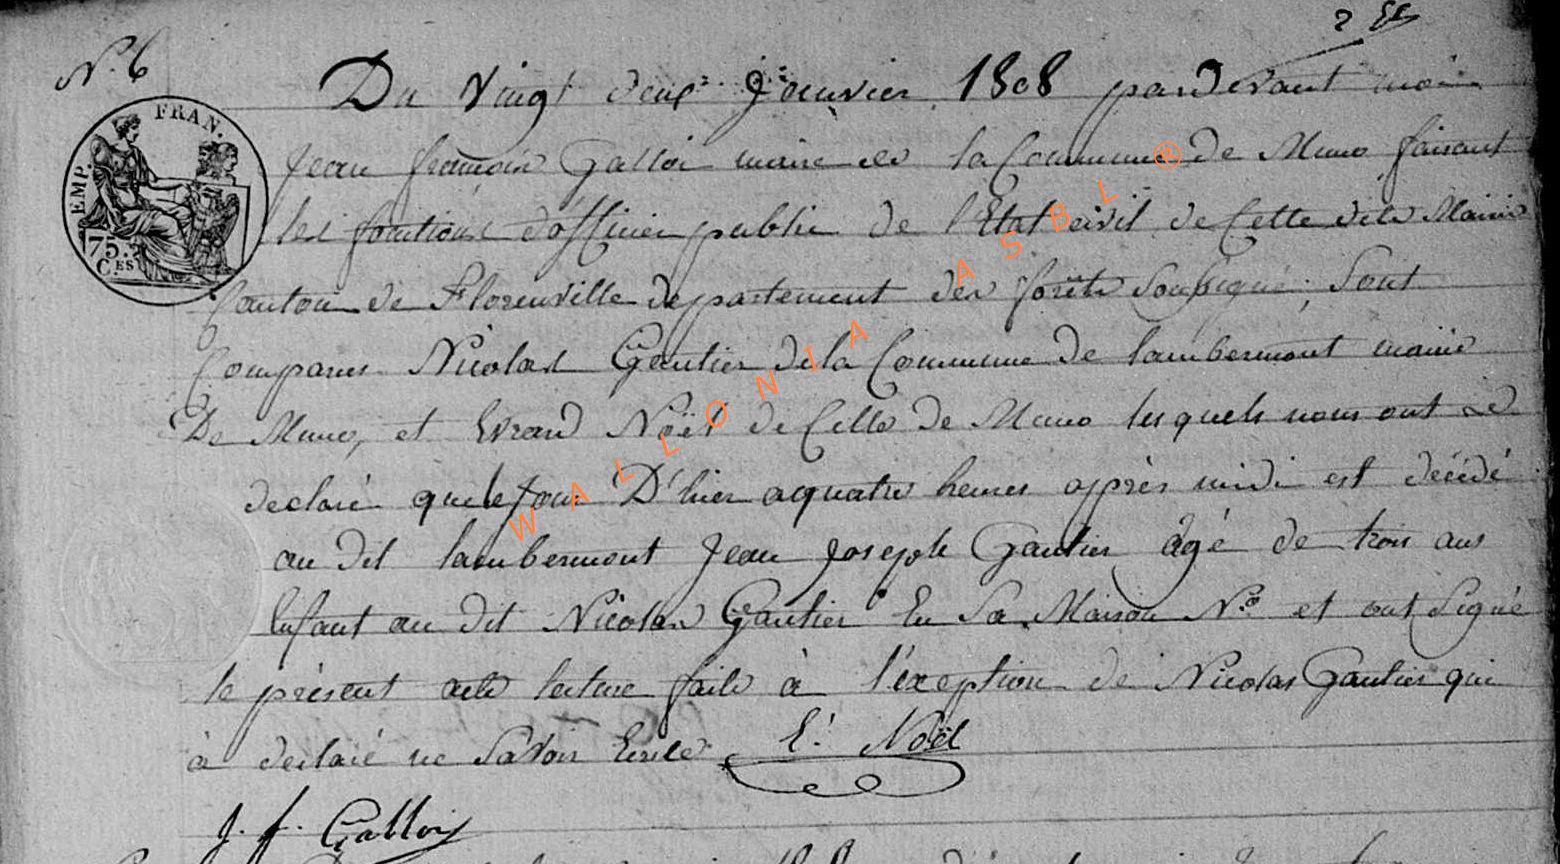 N.º 6
Du vingt deux Janvier 1808 pardevant moi
Jean françois Galloi maire de la Commune de Muno faisant
les fonctions d'officier public de l'Etat civil de Cette dite Mairie
Canton de Florenville departement des forêts Soussigné; Sont
Comparus Nicolas Gautier de la Commune de lambermont mairie
De Muno, et Evrard Noël de Celle de Muno lesquels nous ont
declaré que le jour D'hier a quatre heures après midi est décédé
au dit lambermont Jean Joseph Gautier âgé de trois ans
Enfant au dit Nicolas Gautier En Sa Maison N.º et ont Signé
le présent acte lecture faite à l'exeption de Nicolas Gautier qui
à declaré ne Savoir Ecrire E. Noël
J. f. Galloi
EMP. FRAN.
75.
CES
WALLONIA ASBL ®